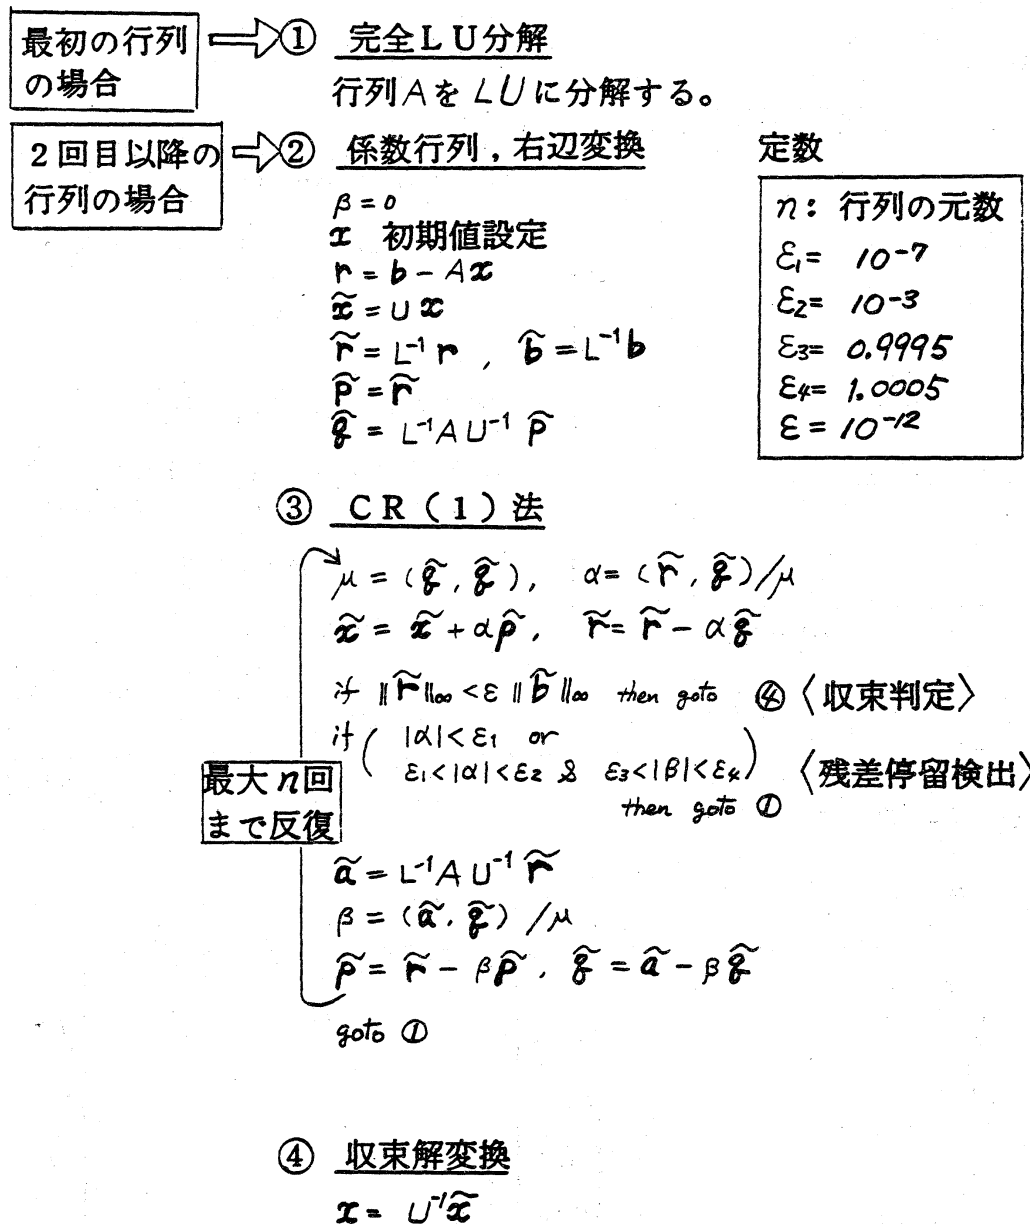 最初の行列
の場合
① 完全LU分解
行列AをLUに分解する。
2回目以降の
行列の場合
② 係数行列,右辺変換
β = 0
x 初期値設定
r = b − Ax
x̃ = U x
r̃ = L⁻¹ r , b̃ = L⁻¹b
p̃ = r̃
q̃ = L⁻¹AU⁻¹ p̃
定数
n: 行列の元数
ε₁= 10⁻⁷
ε₂= 10⁻³
ε₃= 0.9995
ε₄= 1.0005
ε = 10⁻¹²
③ CR(1)法
μ = (q̃, q̃), α = (r̃, q̃)/μ
x̃ = x̃ + αp̃, r̃ = r̃ − αq̃
if ‖r̃‖∞ < ε ‖b̃‖∞ then goto ④ 〈収束判定〉
if ( |α| < ε₁ or
ε₁<|α|<ε₂ & ε₃<|β|<ε₄) 〈残差停留検出〉
then goto ①
最大n回
まで反復
ã = L⁻¹AU⁻¹ r̃
β = (ã, q̃) /μ
p̃ = r̃ − βp̃, q̃ = ã − βq̃
goto ①
④ 収束解変換
x = U⁻¹x̃